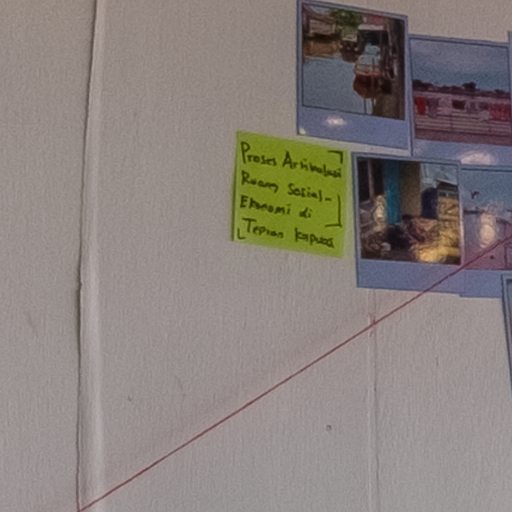 Proses Artikulasi
Ruang Sosial-
Ekonomi di
Tepian Kapuas